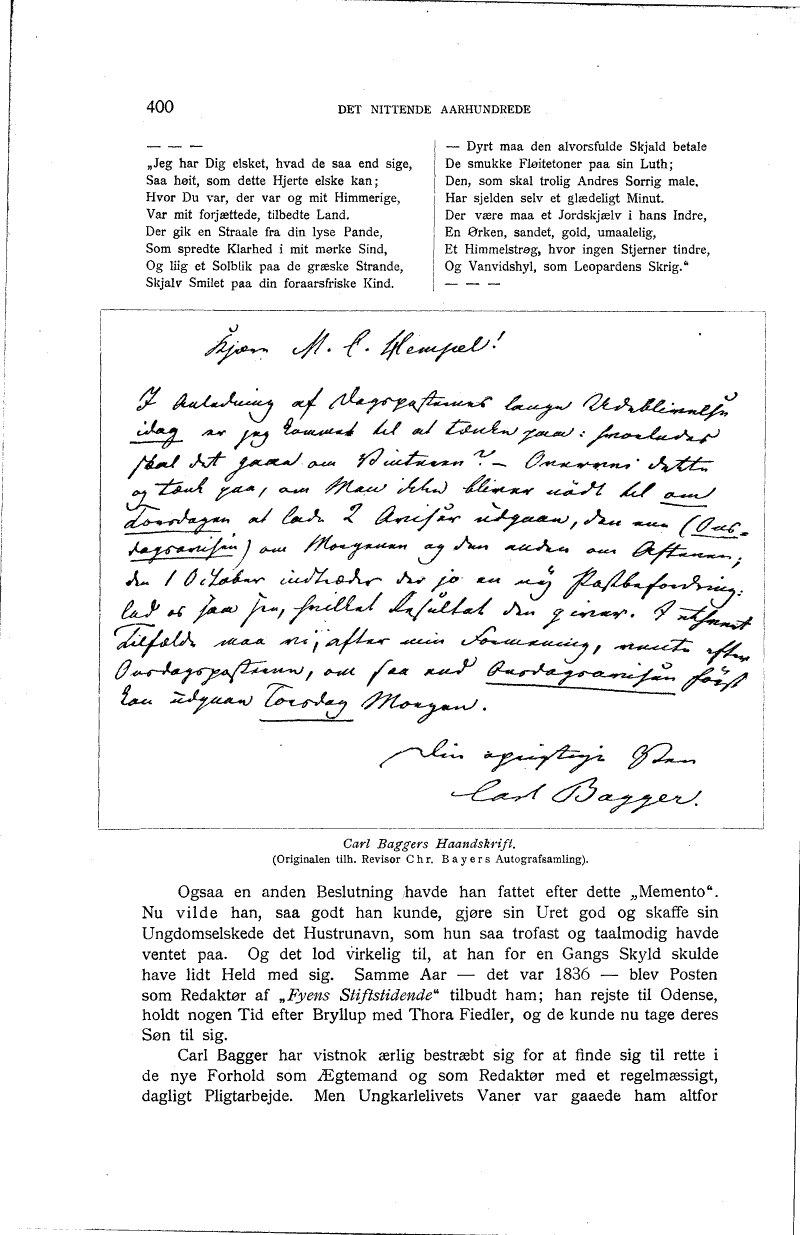 400
DET NITTENDE AARHUNDREDE
— — —
„Jeg har Dig elsket, hvad de saa end sige,
Saa høit, som dette Hjerte elske kan;
Hvor Du var, der var og mit Himmerige,
Var mit forjættede, tilbedte Land.
Der gik en Straale fra din lyse Pande,
Som spredte Klarhed i mit mørke Sind,
Og liig et Solblik paa de græske Strande,
Skjalv Smilet paa din foraarsfriske Kind.
— Dyrt maa den alvorsfulde Skjald betale
De smukke Fløitetoner paa sin Luth;
Den, som skal trolig Andres Sorrig male,
Har sjelden selv et glædeligt Minut.
Der være maa et Jordskjælv i hans Indre,
En Ørken, sandet, gold, umaalelig,
Et Himmelstrøg, hvor ingen Stjerner tindre,
Og Vanvidshyl, som Leopardens Skrig.“
— — —
Kjære M. C. Hempel!
I Anledning af Dagspostens lange Udeblivelse
idag er jeg kommet til at tænke paa: hvorledes
skal det gaae om Vinteren? — Overvei dette
og tænk paa, om Man ikke bliver nödt til om
Torsdagen at lade 2 Aviser udgaae, den ene (Ons-
dagsavisen) om Morgenen og den anden om Aftenen;
den 1 October indtræder der jo en ny Postbefordring:
lad os saa see, hvilket Resultat den giver. I ethvert
Tilfælde maa vi, efter min Formening, vente efter
Onsdagsposten, om saa end Onsdagsavisen först
kan udgaae Torsdag Morgen.
Din oprigtige Ven
Carl Bagger.
Carl Baggers Haandskrift.
(Originalen tilh. Revisor Chr. Bayers Autografsamling).
Ogsaa en anden Beslutning havde han fattet efter dette „Memento“.
Nu vilde han, saa godt han kunde, gjøre sin Uret god og skaffe sin
Ungdomselskede det Hustrunavn, som hun saa trofast og taalmodig havde
ventet paa. Og det lod virkelig til, at han for en Gangs Skyld skulde
have lidt Held med sig. Samme Aar — det var 1836 — blev Posten
som Redaktør af „Fyens Stiftstidende“ tilbudt ham; han rejste til Odense,
holdt nogen Tid efter Bryllup med Thora Fiedler, og de kunde nu tage deres
Søn til sig.
Carl Bagger har vistnok ærlig bestræbt sig for at finde sig til rette i
de nye Forhold som Ægtemand og som Redaktør med et regelmæssigt,
dagligt Pligtarbejde. Men Ungkarlelivets Vaner var gaaede ham altfor